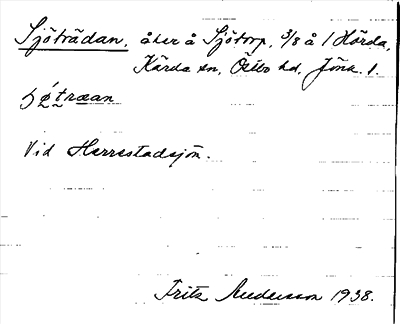 Sjöträdan, åker å Sjötorp, 3/8 å 1 Hörda,
Kärda sn, Östbo hd, Jönk. l.
Vid Herrestadsjön.
Fritz Andersson 1938.